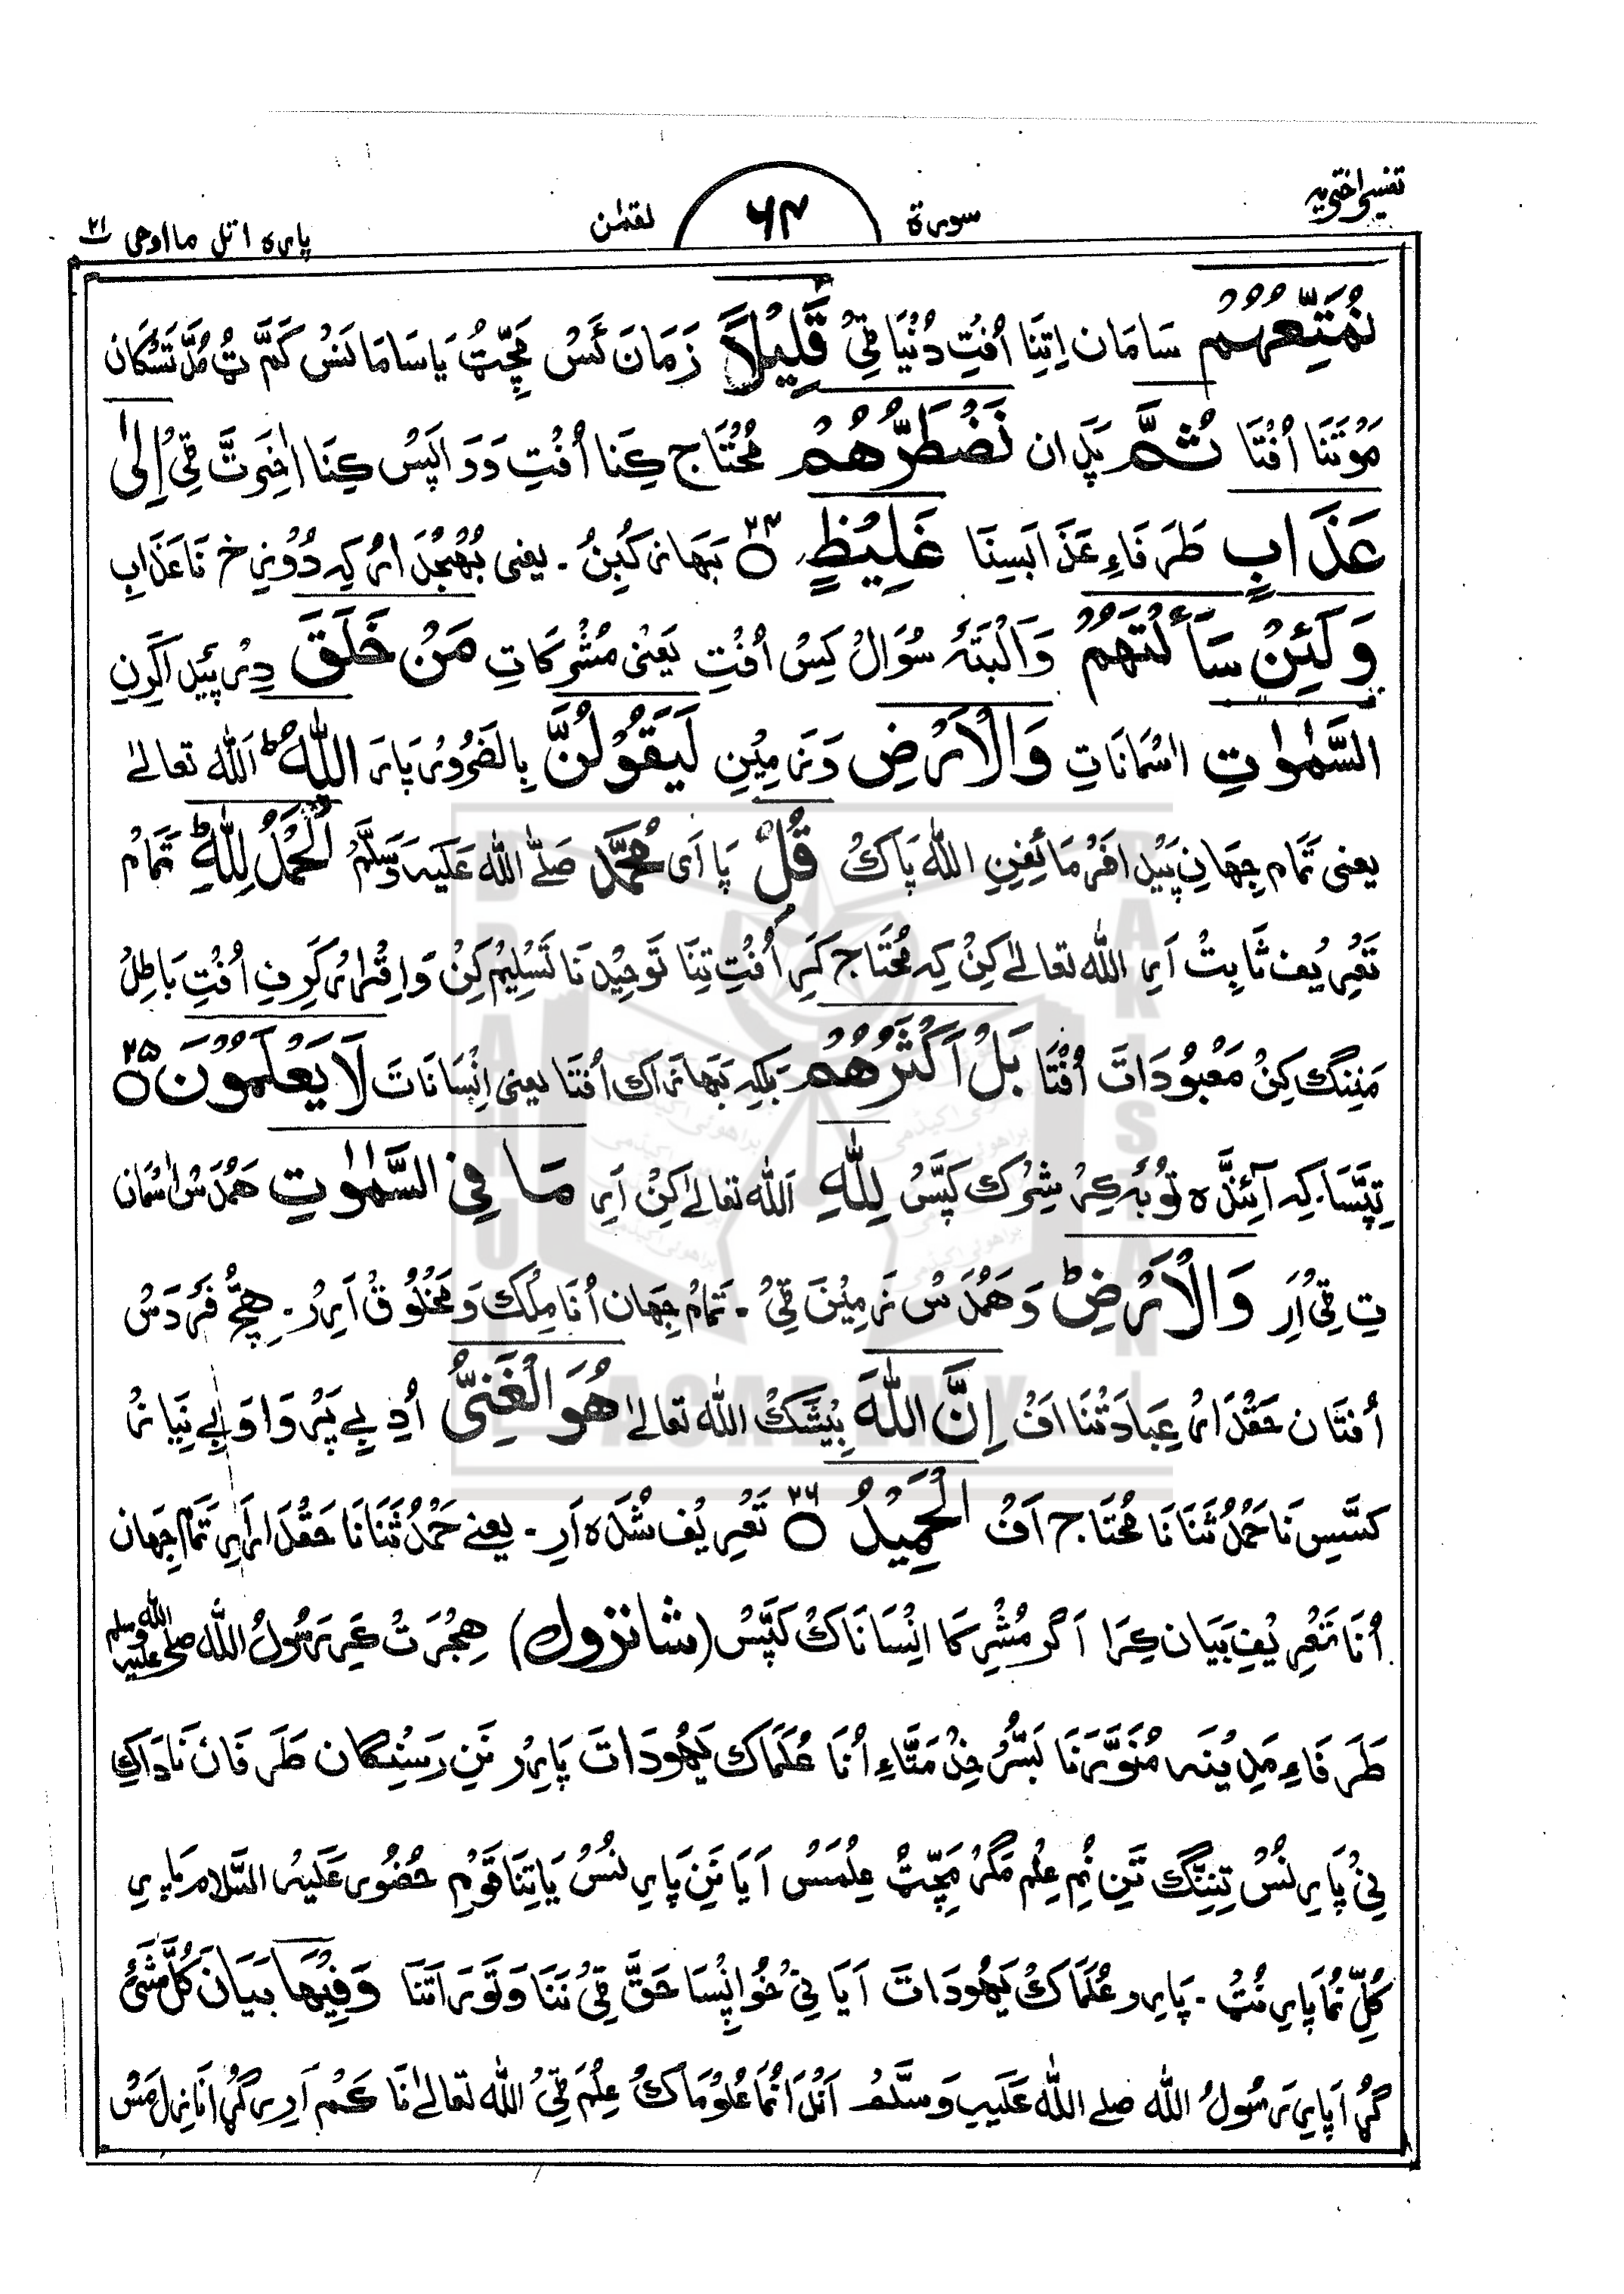 تفسیر اختریہ
سورۃ ۶۴ لقمٰن
پارہ اتل ما اوحی ۲۱
نُمَتِّعُهُمْ سَامَان اِتِنَا اُفتِ دُنْیَا ٹی قَلِیْلًا زَمَان ئَسْ مَچِّٹْ یَا سَامَا نَسْ کَمَّ ٹْ مُدَّ تَسْکَان
مَوْتَنَا اُفْتَا ثُمَّ پَدَان نَضْطَرُّهُمْ مُحْتَاج کِنَا اُفْتِ وَ وَاپَسْ کِنَا اٰخِرَتَّ ٹی اِلٰی
عَذَابٍ طَرَفَاءِ عَذَابَسِنَا غَلِیْظٍ ۲۴ بَھَازکُبِنُ ۔ یعنی بُھْنجُدَ ارُ کِہ دُوْزِخ نَا عَذَابِ
وَلَئِنْ سَاَلْتَهُمْ وَاَلْبَتَہ سُوَالْ کِسْ اُفْتِ یَعْنی مُشْرِکَاتِ مَنْ خَلَقَ دِرْ پَیْدا کَرِنِ
السَّمٰوٰتِ اٰسْمَانَاتِ وَالْاَرْضِ وَ زَمِیْنِ لَیَقُوْلُنَّ بِالضَّرُوْرْ پَارَ اللّٰهُ ؕ اَللّٰہ تعالےٰ
یعنی تَمَام جِھَانِ پَیْدا فَرْمَائِفِنِ اللّٰہ پَاکْ قُلْ پَا اَی مُحَمَّد صَلَّے اللّٰہ عَلَیہ وَسَلَّمْ اَلْحَمْدُ لِلّٰهِ ؕ تَمَامْ
تَعْرِیْف ثَابِتْ اَرِ اللّٰہ تعالےٰ کِنْ کِہ مُحْتَاج کَرِ اُفْتِ تِنَا تَوحِیْد نَا تَسْلِیْم کِنْ وَ اِقْرَار کَرِفِ اُفْتِ بَاطِلْ
مَنِنگ کِنْ مَعْبُوْدَاتَ اُفْتَا بَلْ اَكْثَرُهُمْ بَلکِہ بَھَازَاک اُفتَا یعنی اِنْسَانَاتَ لَا یَعْلَمُوْنَ ۲۵
تِپَّسَا۔ کِہ آئِنْدَہ تَوْبَہ کِرْ شِرْک کَپَّسْ لِلّٰهِ اَللّٰہ تعالےٰ کِنْ اَرِ مَا فِی السَّمٰوٰتِ هَمْدَسْ اٰسْمَان
تِ ٹی اَرِ وَالْاَرْضِ ؕ وَ هَمْدَسْ زَمِیْنَ ٹی ۔ تَمَامْ جِھَان اُنَا مِلْک وَ مَخْلُوْقْ اَرِرْ ۔ هِچّْ فَرْدَسْ
اُفتَان حَقْدَارْ عِبَادَتْنَا اَفْ اِنَّ اللّٰهَ بَیْشَکْ اللّٰہ تعالےٰ هُوَ الْغَنِیُّ اُدِ بے پَرْوَا وَ بے نِیَازْ
کَسَّسِ نَا حَمْدُ ثَنَا نَا مُحْتَاج اَفْ الْحَمِیْدُ ۲۶ تَعْرِیْف شُدَہ اَرِ ۔ یعنے حَمْدُ ثَنَانَا حَقْدَار اَرِ تَمَام جِھَان
اُنَا تَعْرِیْفِ بَیَان کِرَا اَگر مُشْرِکَا اِنْسَانَاکْ کَپَّسْ (شانزول) هِجْرَتْ کَرِ رَسُولُ اللّٰہ صلی اللّٰہ علیہ وسلم
طَرَفَاءِ مَدِیْنَہ مُنَوَّرَہ نَا بَسُّرْ خِدْمَتَّاءِ اُنَا عُلَمَاک یَهُودَاتَ پَارِر نَنِ رَسَنِگَان طَرَفَان نَا دَاکِ
نِیْ پَارِ نُسْ تِنِنْگ تَنِ نُمِ عِلْم مَگر مَچِّٹْ عِلْمَسْ اَیَا نَنِ پَارِ نسْ یَا تِنَا قَوْمِ حضُور عَلَیہ السَّلام پَارِ
کُلِّ نُمَا پَارِ نُٹْ ۔ پَارِر عُلَمَاکْ یَهُودَاتَ اَیَا نِیْ خُوَانِپِسَا حَقَّ ٹی نَنَا وَ تَورَاتَنَا وَفِیْهَا بَیَانَ کُلِّ شَیْئٍ
گُڑَا پَارِ رَسُولُ اللّٰہ صلے اللّٰہ عَلَیہ وَسَلَّمْ اَنْدَا نُمَا عُلُوْمَاکْ عِلْمَ ٹی اللّٰہ تعالےٰ نَا کَمْ اَرِر گُڑَا نازِل مَسْ